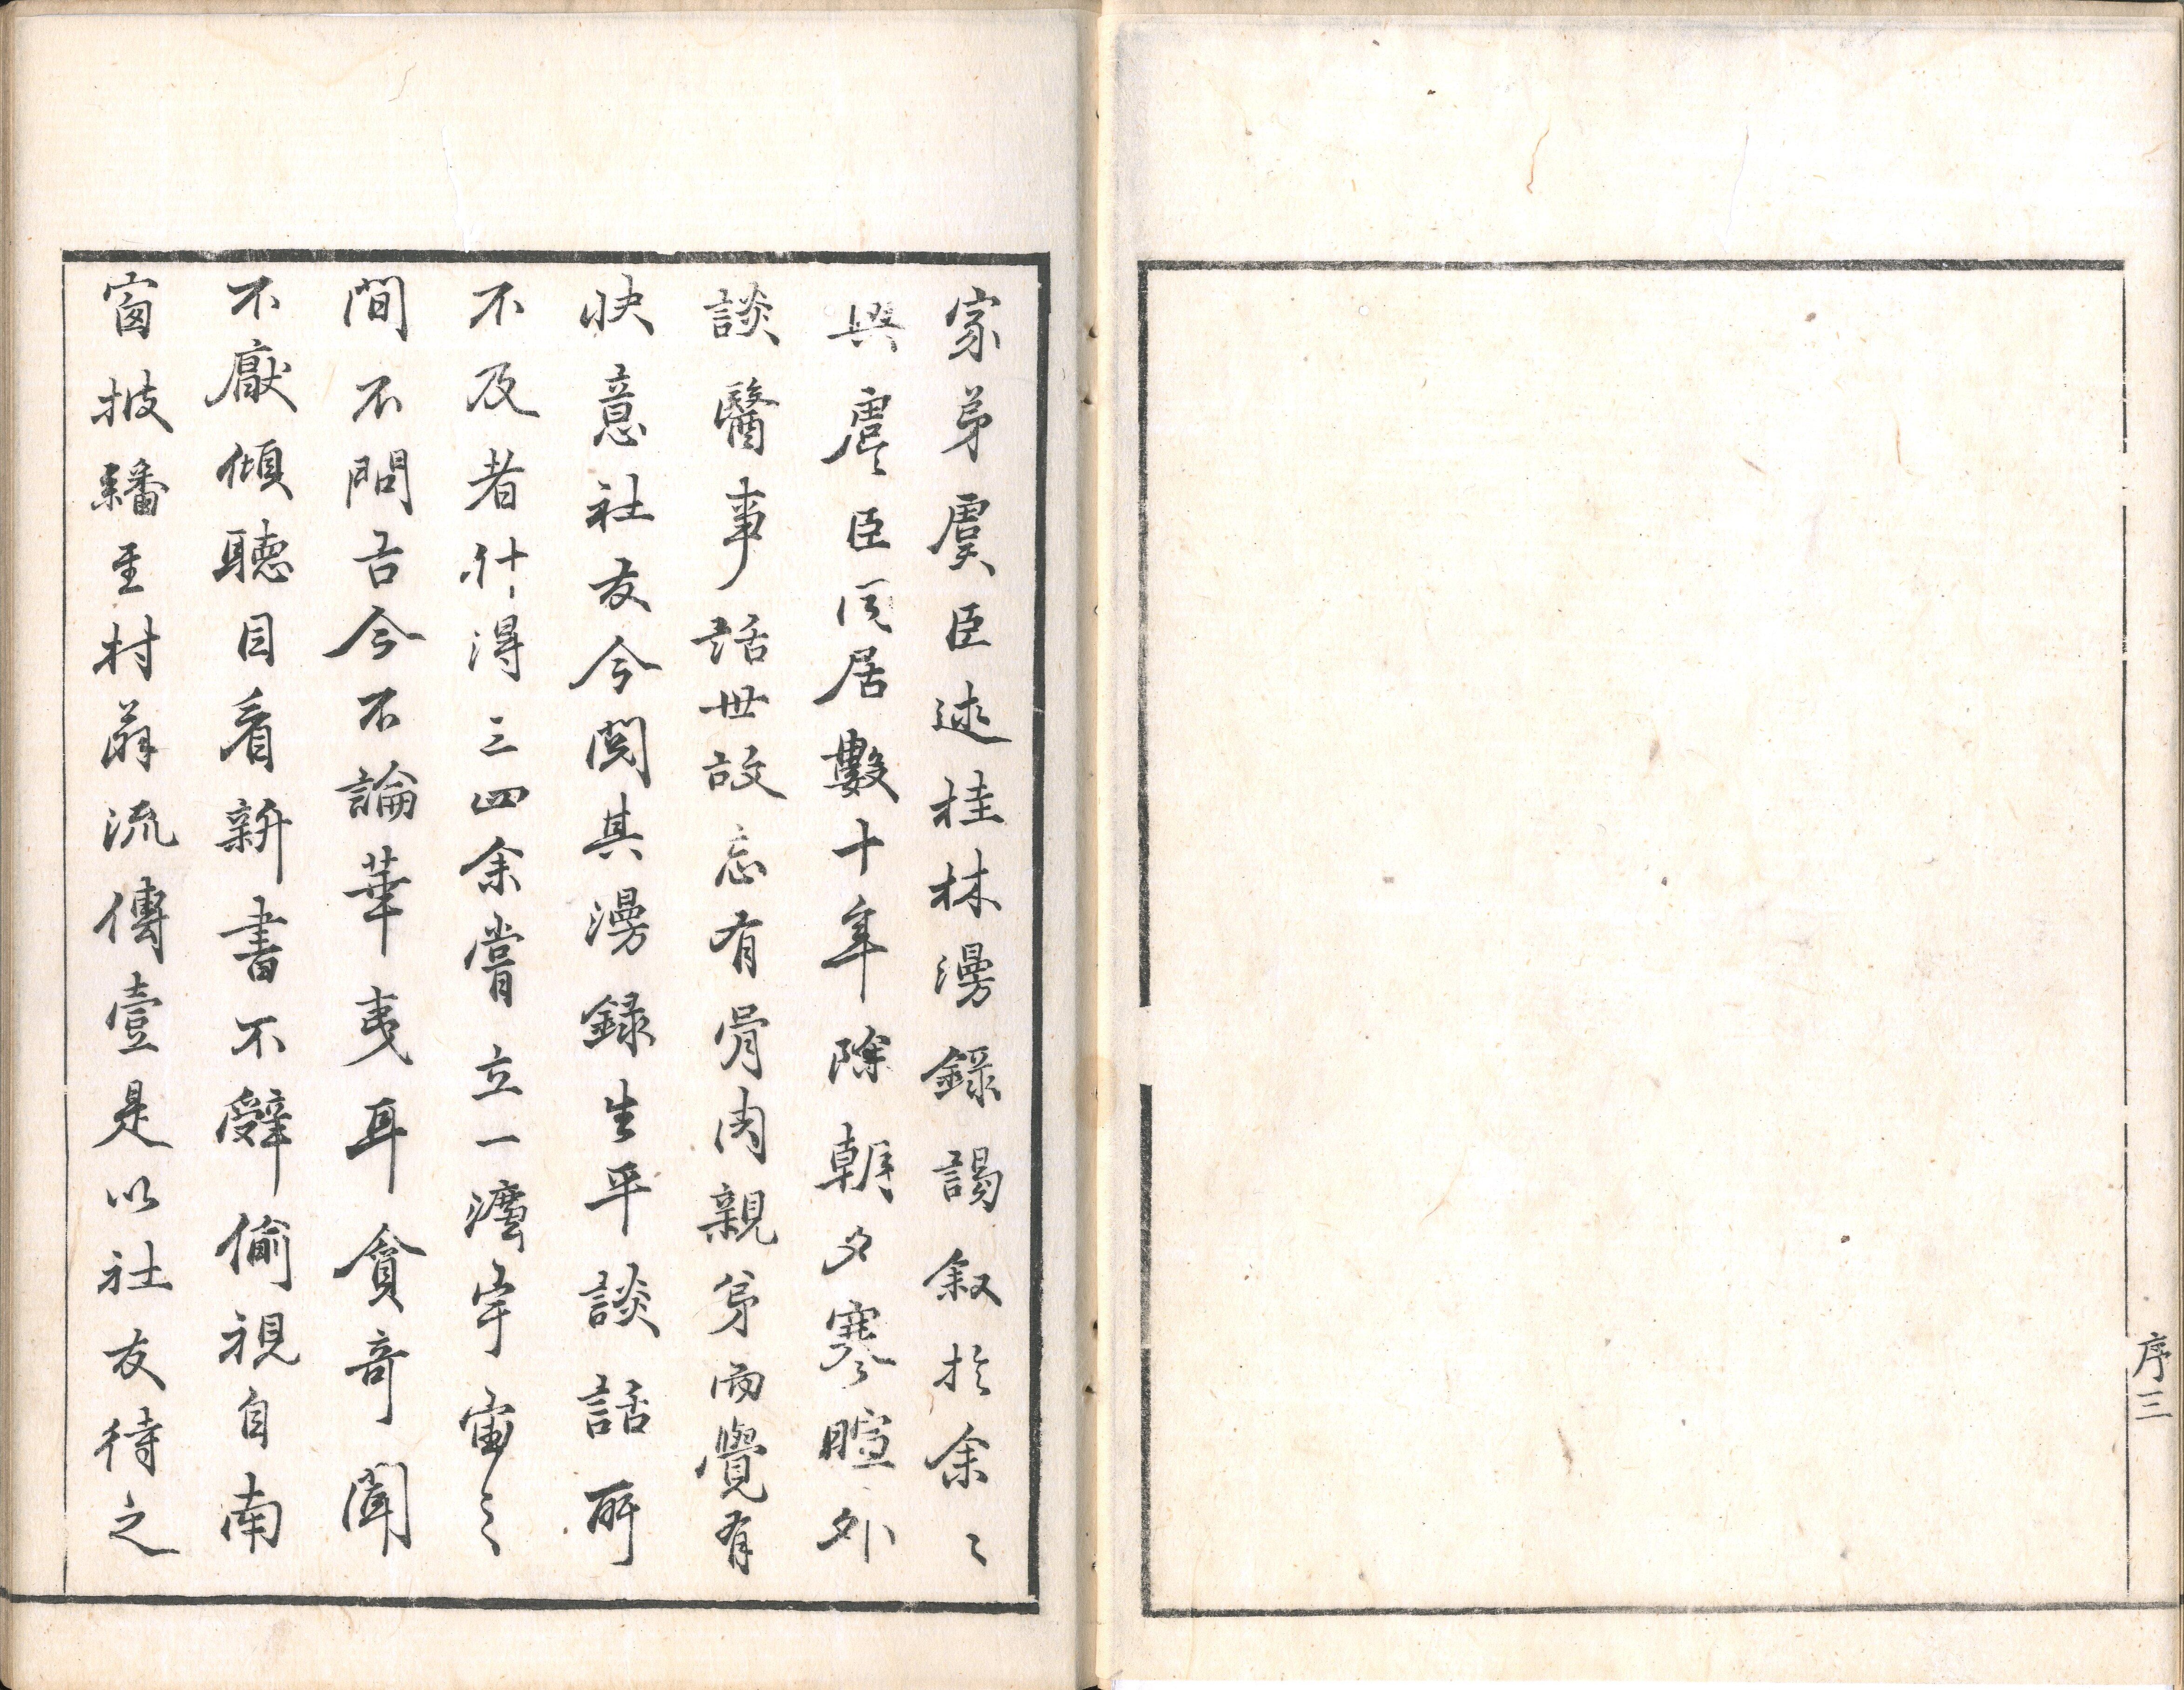 序三
家弟虞臣述桂林漫錄謁叙於余〻
與虞臣同居數十年除朝夕寒暄外
談醫事話世故忘有骨肉親弟而覺有
快意社友今閲其漫録生平談話所
不及者什得三四余嘗立一灋宇宙之
間不問古今不論華夷耳貪奇聞
不厭傾聽目看新書不辭偷視自南
窗披繙至村流傳壹是以社友待之